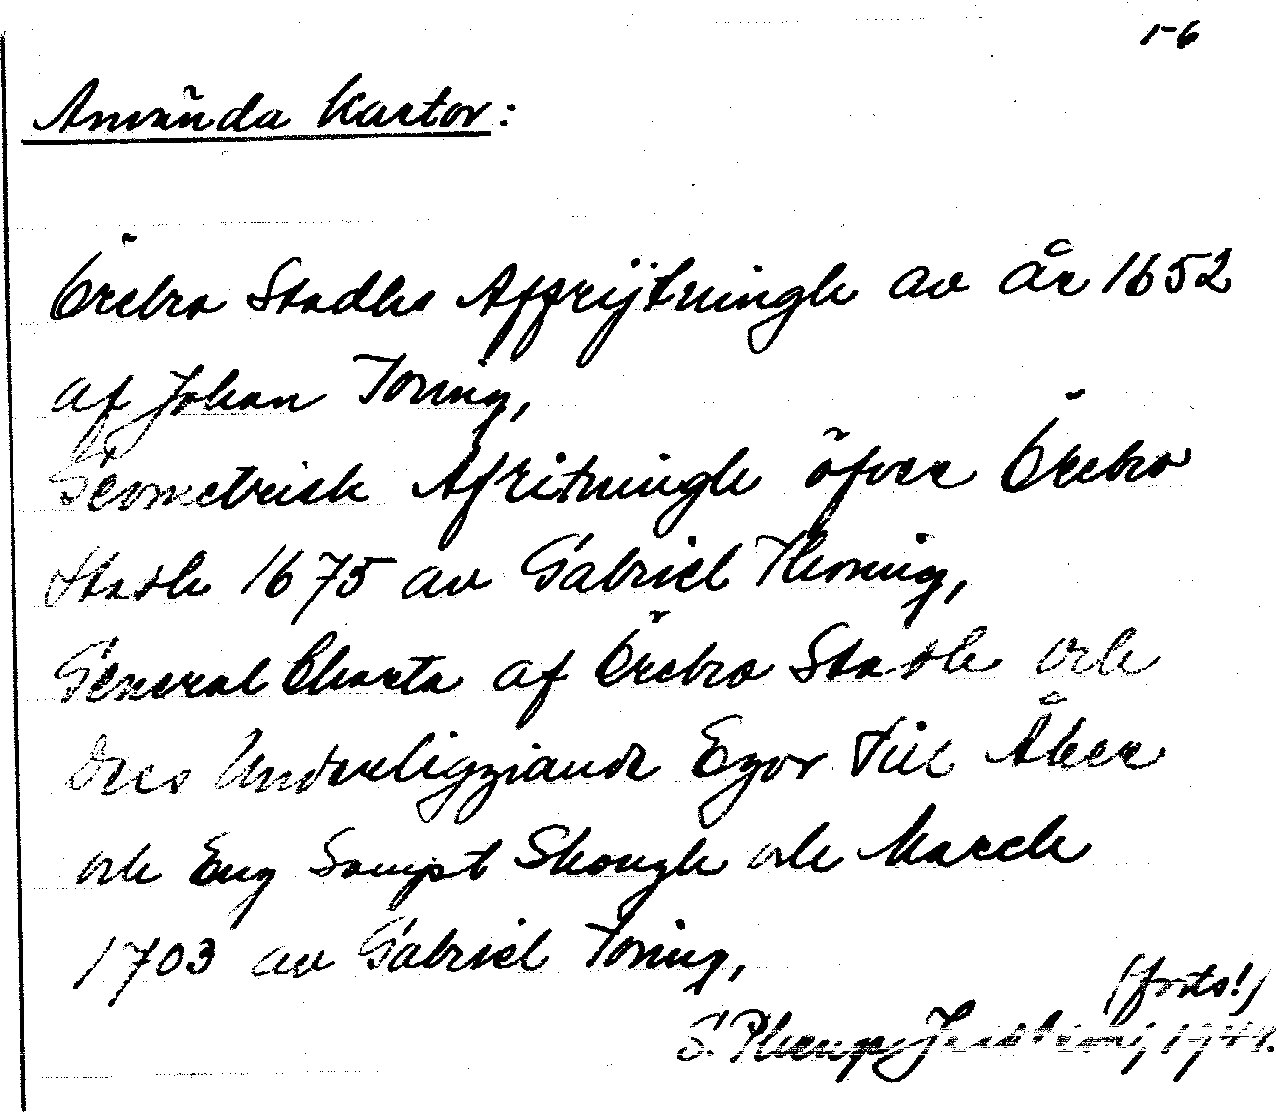 1-6
Använda Kartor:
Örebro Stadhs Affrijtningh av år 1652
af Johan Toring,
Geometrisk Afritningh öfver Örebro
Stadh 1675 av Gabriel Thoring,
General Charta af Örebro Stadh och
dess Underliggiande Egor till Åker
och Eng Sampt Skough och March
1703 av Gabriel Toring,
(forts!)
S.